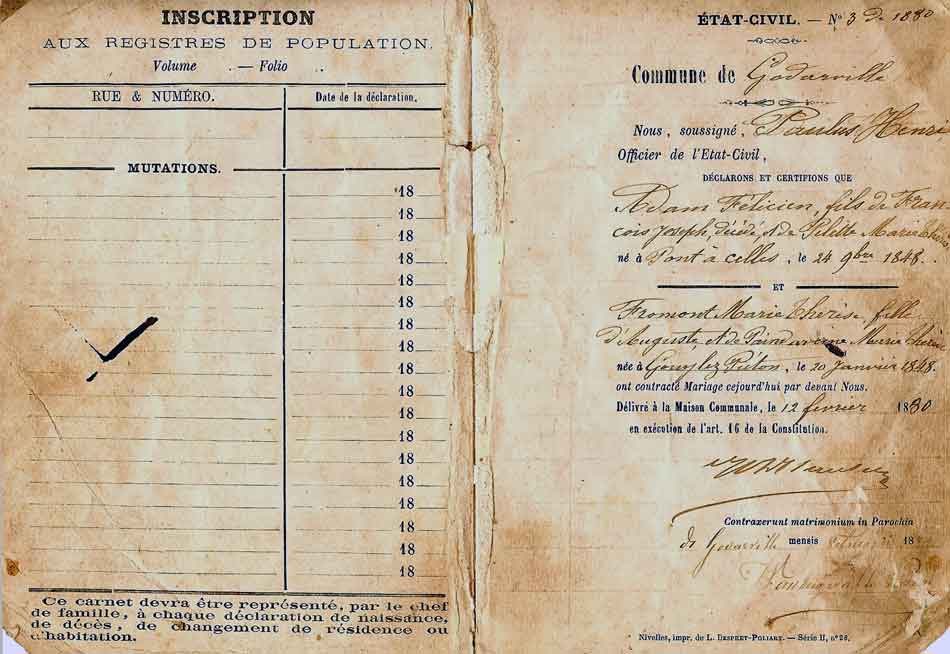 INSCRIPTION
AUX REGISTRES DE POPULATION.
Volume . — Folio .
RUE & NUMÉRO.
Date de la déclaration.
MUTATIONS.
18
18
18
18
18
18
18
18
18
18
18
18
18
18
18
18
18
18
Ce carnet devra être représenté, par le chef
de famille, à chaque déclaration de naissance,
de décès, de changement de résidence ou
d'habitation.
ÉTAT-CIVIL. — No 3 de 1880
Commune de Godarville
Nous, soussigné, Paulus Henri
Officier de l'Etat-Civil,
DÉCLARONS ET CERTIFIONS QUE
Adam Félicien, fils de Fran
çois Joseph, décédé, et de Marie
né à Pont à Celles, le 24 9bre 1848.
ET
Fromont Marie Thérèse, fille
d'Auguste, et de Marie
née à Gouy lez Piéton, le 20 Janvier 1848.
ont contracté Mariage cejourd'hui par devant Nous.
Délivré à la Maison Communale, le 12 février 1880
en exécution de l'art. 16 de la Constitution.
Contraxerunt matrimonium in Parochia
de Godarville mensis 18
Nivelles, impr. de L. DESPRET-POLIART. — Série II, n° 26.